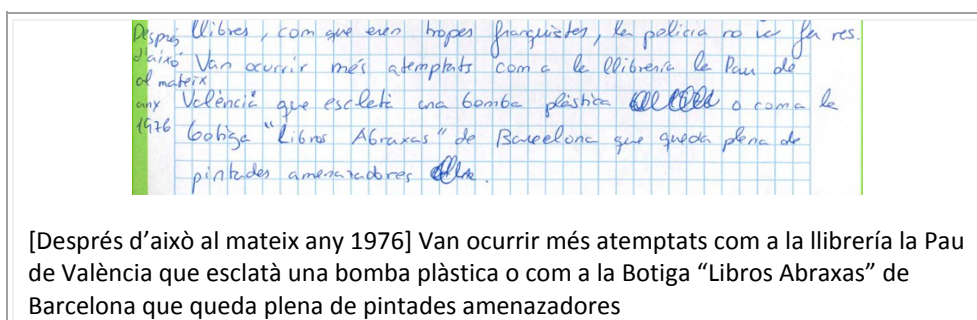 Després llibres, com que eren tropes franquistes, la policia no va fer res.
d'això Van ocurrir més atemptats com a la llibreria la Pau de
al mateix
any València que escletà una bomba plàstica o com a la
1976 botiga "Libros Abraxas" de Barcelona que queda plena de
pintades amenazadores
[Després d'això al mateix any 1976] Van ocurrir més atemptats com a la llibrería la Pau
de València que esclatà una bomba plàstica o com a la Botiga "Libros Abraxas" de
Barcelona que queda plena de pintades amenazadores